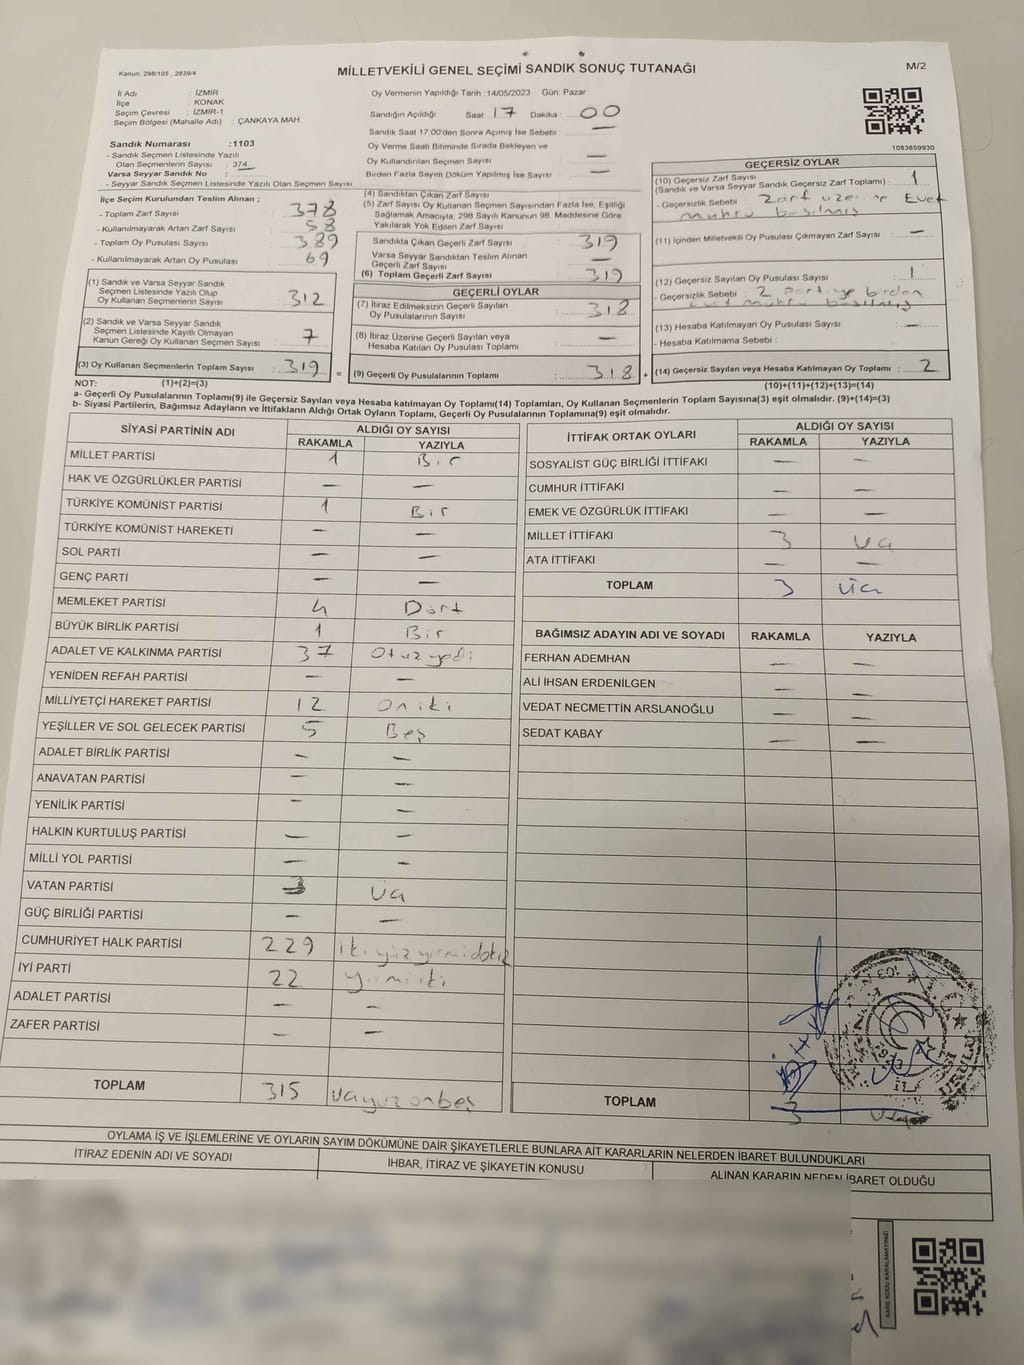 Kanun; 298/105 , 2839/4
MİLLETVEKİLİ GENEL SEÇİMİ SANDIK SONUÇ TUTANAĞI
M/2
İl Adı : İZMİR
İlçe : KONAK
Seçim Çevresi : İZMİR-1
Seçim Bölgesi (Mahalle Adı) : ÇANKAYA MAH.
Oy Vermenin Yapıldığı Tarih :14/05/2023 Gün: Pazar
Sandığın Açıldığı Saat: 17 Dakika : 00
Sandık Saat 17:00'den Sonra Açımış İse Sebebi : —
Oy Verme Saati Bitiminde Sırada Bekleyen ve
Oy Kullandırılan Seçmen Sayısı —
Birden Fazla Sayım Döküm Yapılmış İse Sayısı —
1083859930
Sandık Numarası :1103
- Sandık Seçmen Listesinde Yazılı
Olan Seçmenlerin Sayısı : 374
Varsa Seyyar Sandık No :
- Seyyar Sandık Seçmen Listesinde Yazılı Olan Seçmen Sayısı
İlçe Seçim Kurulundan Teslim Alınan ;
- Toplam Zarf Sayısı 378
- Kullanılmayarak Artan Zarf Sayısı 58
- Toplam Oy Pusulası Sayısı 389
- Kullanılmayarak Artan Oy Pusulası 69
(1) Sandık ve Varsa Seyyar Sandık
Seçmen Listesinde Yazılı Olup
Oy Kullanan Seçmenlerin Sayısı 312
(2) Sandık ve Varsa Seyyar Sandık
Seçmen Listesinde Kayıtlı Olmayan
Kanun Gereği Oy Kullanan Seçmen Sayısı : 7
(3) Oy Kullanan Seçmenlerin Toplam Sayısı : 319 =
(4) Sandıktan Çıkan Zarf Sayısı
(5) Zarf Sayısı Oy Kullanan Seçmen Sayısından Fazla İse, Eşitliği
Sağlamak Amacıyla, 298 Sayılı Kanunun 98. Maddesine Göre
Yakılarak Yok Edilen Zarf Sayısı
Sandıkta Çıkan Geçerli Zarf Sayısı 319
Varsa Seyyar Sandıktan Teslim Alınan
Geçerli Zarf Sayısı —
(6) Toplam Geçerli Zarf Sayısı 319
GEÇERLİ OYLAR
(7) İtiraz Edilmeksizin Geçerli Sayılan
Oy Pusulalarının Sayısı 318
(8) İtiraz Üzerine Geçerli Sayılan veya
Hesaba Katılan Oy Pusulası Toplamı —
(9) Geçerli Oy Pusulalarının Toplamı : 318 +
GEÇERSİZ OYLAR
(10) Geçersiz Zarf Sayısı
(Sandık ve Varsa Seyyar Sandık Geçersiz Zarf Toplamı) : 1
- Geçersizlik Sebebi : Zarf üzerine Evet
mührü basılmış
(11) İçinden Milletvekili Oy Pusulası Çıkmayan Zarf Sayısı —
(12) Geçersiz Sayılan Oy Pusulası Sayısı 1
- Geçersizlik Sebebi : 2 partiye birden
evet mührü basılmış
(13) Hesaba Katılmayan Oy Pusulası Sayısı —
- Hesaba Katılmama Sebebi :
(14) Geçersiz Sayılan veya Hesaba Katılmayan Oy Toplamı : 2
NOT: (1)+(2)=(3)
(10)+(11)+(12)+(13)=(14)
a- Geçerli Oy Pusulalarının Toplamı(9) ile Geçersiz Sayılan veya Hesaba katılmayan Oy Toplamı(14) Toplamları, Oy Kullanan Seçmenlerin Toplam Sayısına(3) eşit olmalıdır. (9)+(14)=(3)
b- Siyasi Partilerin, Bağımsız Adayların ve İttifakların Aldığı Ortak Oyların Toplamı, Geçerli Oy Pusulalarının Toplamına(9) eşit olmalıdır.
SİYASİ PARTİNİN ADI ALDIĞI OY SAYISI
RAKAMLA YAZIYLA
MİLLET PARTİSİ 1 Bir
HAK VE ÖZGÜRLÜKLER PARTİSİ — —
TÜRKİYE KOMÜNİST PARTİSİ 1 Bir
TÜRKİYE KOMÜNİST HAREKETİ — —
SOL PARTİ — —
GENÇ PARTİ — —
MEMLEKET PARTİSİ 4 Dört
BÜYÜK BİRLİK PARTİSİ 1 Bir
ADALET VE KALKINMA PARTİSİ 37 Otuzyedi
YENİDEN REFAH PARTİSİ — —
MİLLİYETÇİ HAREKET PARTİSİ 12 Oniki
YEŞİLLER VE SOL GELECEK PARTİSİ 5 Beş
ADALET BİRLİK PARTİSİ — —
ANAVATAN PARTİSİ — —
YENİLİK PARTİSİ — —
HALKIN KURTULUŞ PARTİSİ — —
MİLLİ YOL PARTİSİ — —
VATAN PARTİSİ 3 Üç
GÜÇ BİRLİĞİ PARTİSİ — —
CUMHURİYET HALK PARTİSİ 229 ikiyüzyirmidokuz
İYİ PARTİ 22 yirmiiki
ADALET PARTİSİ — —
ZAFER PARTİSİ — —
TOPLAM 315 üçyüzonbeş
İTTİFAK ORTAK OYLARI ALDIĞI OY SAYISI
RAKAMLA YAZIYLA
SOSYALİST GÜÇ BİRLİĞİ İTTİFAKI — —
CUMHUR İTTİFAKI — —
EMEK VE ÖZGÜRLÜK İTTİFAKI — —
MİLLET İTTİFAKI 3 Üç
ATA İTTİFAKI — —
TOPLAM 3 Üç
BAĞIMSIZ ADAYIN ADI VE SOYADI RAKAMLA YAZIYLA
FERHAN ADEMHAN — —
ALİ İHSAN ERDENİLGEN — —
VEDAT NECMETTİN ARSLANOĞLU — —
SEDAT KABAY — —
TOPLAM 3 Üç
OYLAMA İŞ VE İŞLEMLERİNE VE OYLARIN SAYIM DÖKÜMÜNE DAİR ŞİKAYETLERLE BUNLARA AİT KARARLARIN NELERDEN İBARET BULUNDUKLARI
İTİRAZ EDENİN ADI VE SOYADI İHBAR, İTİRAZ VE ŞİKAYETİN KONUSU ALINAN KARARIN NEDEN İBARET OLDUĞU
KARE KODU KARALAMAYINIZ!